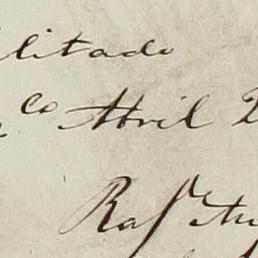 litado
co Abril 2
Raf.l Au